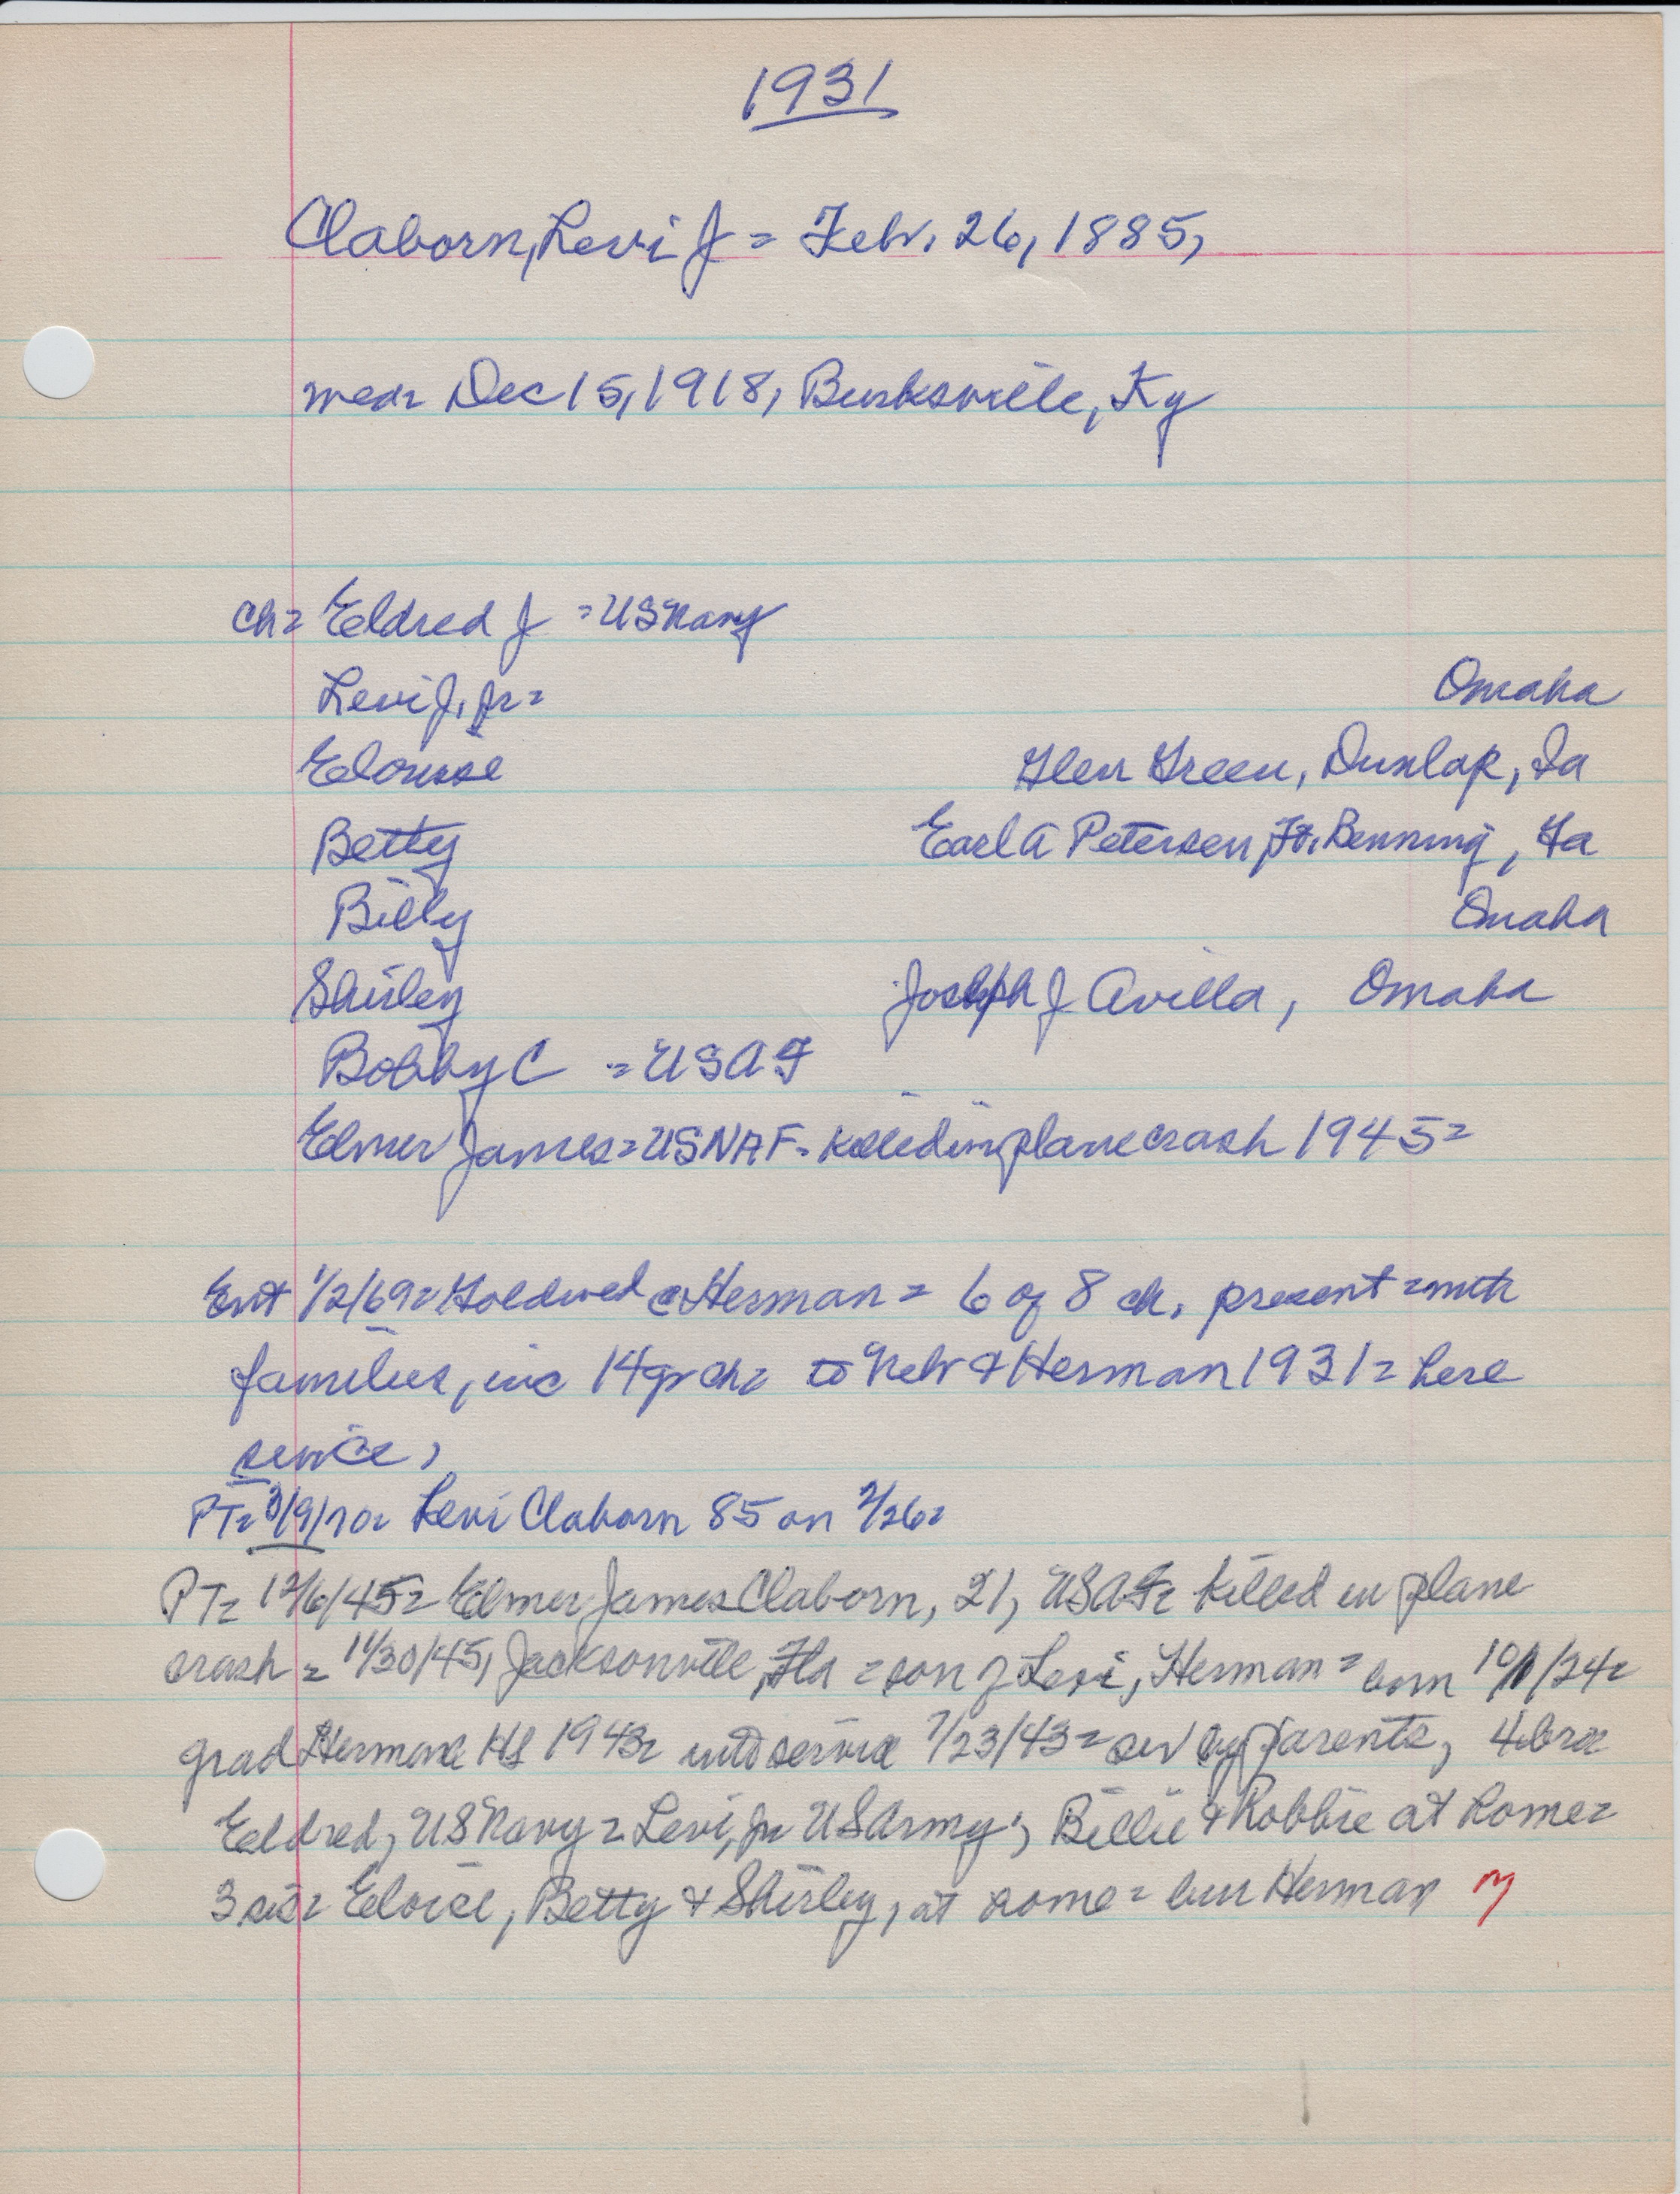 1931
Claborn, Levi J = Febr. 26, 1885,
mar= Dec 15, 1918, Burksville, Ky
ch= Eldred J = US Navy
Levi J, Jr= Omaha
Elouise Glen Green, Dunlap, Ia
Betty Earl A Petersen, Ft. Benning, Ga
Billy Omaha
Shirley Joseph J Avilla, Omaha
Bobby C = USAF
Elmer James= USNAF- killed in plane crash 1945=
Ent 1/2/69= Gold wed @ Herman = 6 of 8 ch, present = with
families, inc 14 gr ch= to Nebr & Herman 1931= here
since,
PT= 3/9/70= Levi Claborn 85 on 2/26=
PT= 12/6/45= Elmer James Claborn, 21, USAF= killed in plane
crash = 11/30/45, Jacksonville, Fla = son of Levi, Herman = born /24=
grad Herman HS 1943= into service 7/23/43= sur by parents, 4 bro=
Eldred, US Navy = Levi, Jr US Army; Billie & Robbie at home=
3 sis= Eloise, Betty & Shirley, at home = bur Herman